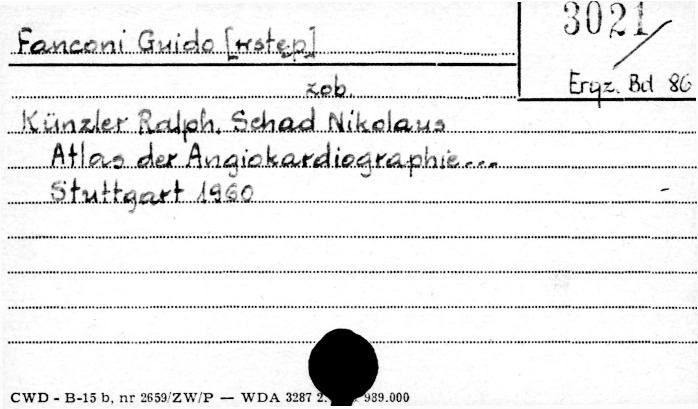 Fanconi Guido [wstęp]
3021/
Ergz. Bd 86
zob.
Künzler Ralph, Schad Nikolaus
Atlas der Angiokardiographie...
Stuttgart 1960
CWD - B-15 b, nr 2659/ZW/P — WDA 3287 2. 989.000